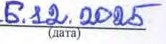 5.12.2025
(дата)